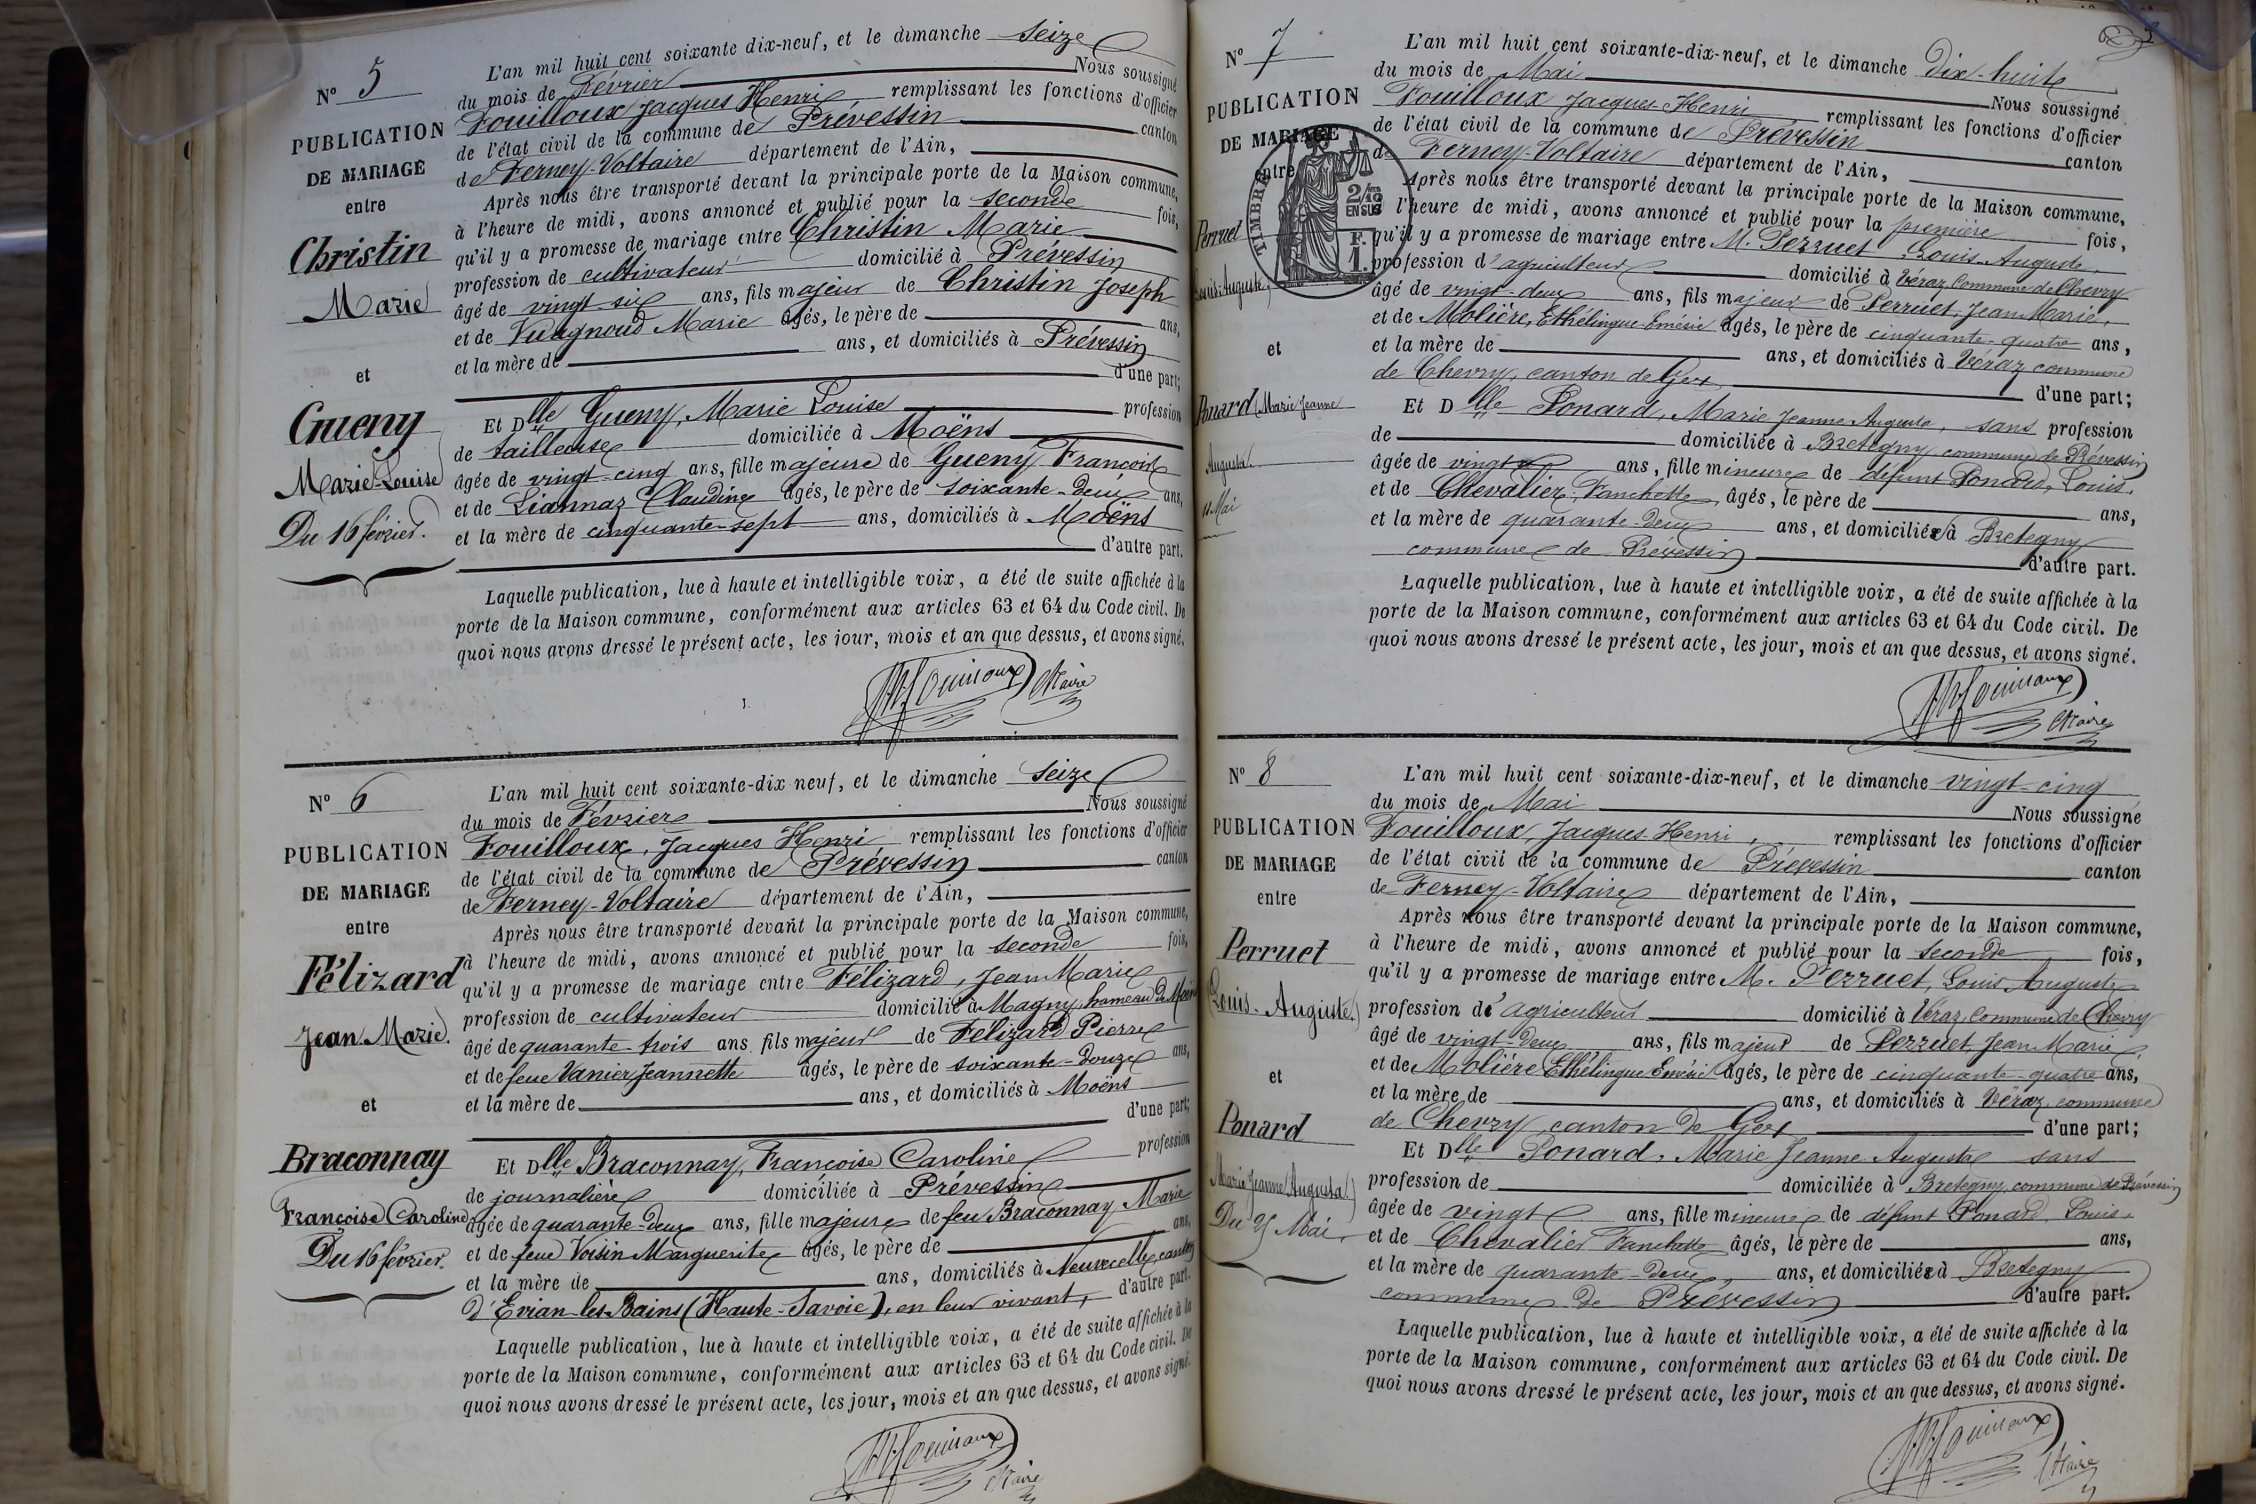 N° 5
PUBLICATION
DE MARIAGE
entre
Christin
Marie
et
Gueny
Marie-Louise
Du 16 février.
L'an mil huit cent soixante dix-neuf, et le dimanche seize
du mois de Février Nous soussigné
Fouilloux Jacques Henri remplissant les fonctions d'officier
de l'état civil de la commune de Prévessin canton
de Ferney-Voltaire département de l'Ain,
Après nous être transporté devant la principale porte de la Maison commune,
à l'heure de midi, avons annoncé et publié pour la seconde fois,
qu'il y a promesse de mariage entre Christin Marie
profession de cultivateur domicilié à Prévessin
âgé de vingt-six ans, fils majeur de Christin Joseph
et de Vuagnoud Marie âgés, le père de ans,
et la mère de ans, et domiciliés à Prévessin
d'une part;
Et Dlle Gueny, Marie Louise profession
de tailleuse domiciliée à Moëns
âgée de vingt-cinq ans, fille majeure de Gueny François
et de Liannaz Claudine âgés, le père de soixante-deux ans,
et la mère de cinquante-sept ans, domiciliés à Moëns
d'autre part.
Laquelle publication, lue à haute et intelligible voix, a été de suite affichée à la
porte de la Maison commune, conformément aux articles 63 et 64 du Code civil. De
quoi nous avons dressé le présent acte, les jour, mois et an que dessus, et avons signé.
Fouilloux Maire
N° 6
PUBLICATION
DE MARIAGE
entre
Félizard
Jean Marie.
et
Braconnay
Françoise Caroline
Du 16 février.
L'an mil huit cent soixante-dix neuf, et le dimanche seize
du mois de Février Nous soussigné
Fouilloux, Jacques Henri remplissant les fonctions d'officier
de l'état civil de la commune de Prévessin canton
de Ferney-Voltaire département de l'Ain,
Après nous être transporté devant la principale porte de la Maison commune,
à l'heure de midi, avons annoncé et publié pour la seconde fois,
qu'il y a promesse de mariage entre Félizard, Jean Marie
profession de cultivateur domicilié à Magny, hameau de Moëns
âgé de quarante-trois ans fils majeur de Felizard Pierre
et de feue Vanier Jeannette âgés, le père de soixante-douze ans,
et la mère de ans, et domiciliés à Moëns
d'une part;
Et Dlle Braconnay, Françoise Caroline profession
de journalière domiciliée à Prévessin
âgée de quarante-deux ans, fille majeure de feu Braconnay Marie
et de feue Voisin Marguerite âgés, le père de ans,
et la mère de ans, domiciliés à Neuvecelle, canton
d'Evian-les-Bains (Haute-Savoie), en leur vivant, d'autre part.
Laquelle publication, lue à haute et intelligible voix, a été de suite affichée à la
porte de la Maison commune, conformément aux articles 63 et 64 du Code civil. De
quoi nous avons dressé le présent acte, les jour, mois et an que dessus, et avons signé.
Fouilloux Maire
N° 7
PUBLICATION
DE MARIAGE
entre
TIMBRE
2/10ms
EN SUS
F.
1.
Perruet
Louis-Auguste,
et
Ponard Marie Jeanne
Augusta.
18 Mai
L'an mil huit cent soixante-dix-neuf, et le dimanche dix-huit
du mois de Mai Nous soussigné
Fouilloux Jacques-Henri remplissant les fonctions d'officier
de l'état civil de la commune de Prévessin canton
de Ferney-Voltaire département de l'Ain,
Après nous être transporté devant la principale porte de la Maison commune,
l'heure de midi, avons annoncé et publié pour la première fois,
qu'il y a promesse de mariage entre M. Perruet Louis-Auguste,
profession d'agriculteur domicilié à Véraz, Commune de Chevry
âgé de vingt-deux ans, fils majeur de Perruet, Jean Marie,
et de Molière, Ethélingue Emérie âgés, le père de cinquante-quatre ans,
et la mère de ans, et domiciliés à Véraz commune
de Chevry, canton de Gex d'une part;
Et Dlle Ponard, Marie Jeanne Augusta, sans profession
de domiciliée à Bretegny commune de Prévessin
âgée de vingt ans, fille mineure de défunt Ponard, Louis,
et de Chevalier, Fanchette, âgés, le père de ans,
et la mère de quarante-deux ans, et domiciliée à Bretegny
commune de Prévessin d'autre part.
Laquelle publication, lue à haute et intelligible voix, a été de suite affichée à la
porte de la Maison commune, conformément aux articles 63 et 64 du Code civil. De
quoi nous avons dressé le présent acte, les jour, mois et an que dessus, et avons signé.
Fouilloux Maire
N° 8
PUBLICATION
DE MARIAGE
entre
Perruet
(Louis-Auguste.)
et
Ponard
Marie Jeanne (Augusta)
Du 25 Mai.
L'an mil huit cent soixante-dix-neuf, et le dimanche vingt-cinq
du mois de Mai Nous soussigné
Fouilloux, Jacques-Henri, remplissant les fonctions d'officier
de l'état civil de la commune de Prévessin canton
de Ferney-Voltaire département de l'Ain,
Après nous être transporté devant la principale porte de la Maison commune,
à l'heure de midi, avons annoncé et publié pour la seconde fois,
qu'il y a promesse de mariage entre M. Perruet, Louis Auguste
profession d'agriculteur domicilié à Véraz, Commune de Chevry
âgé de vingt-deux ans, fils majeur de Perruet, Jean Marie,
et de Molière Ethélingue Emérie âgés, le père de cinquante-quatre ans,
et la mère de ans, et domiciliés à Véraz, commune
de Chevry canton de Gex d'une part;
Et Dlle Ponard, Marie Jeanne Augusta sans
profession de domiciliée à Bretegny, commune de Prévessin
âgée de vingt ans, fille mineure de défunt Ponard, Louis,
et de Chevalier Fanchette âgés, le père de ans,
et la mère de quarante-deux, ans, et domiciliée à Bretegny
commune de Prévessin d'autre part.
Laquelle publication, lue à haute et intelligible voix, a été de suite affichée à la
porte de la Maison commune, conformément aux articles 63 et 64 du Code civil. De
quoi nous avons dressé le présent acte, les jour, mois et an que dessus, et avons signé.
Fouilloux Maire